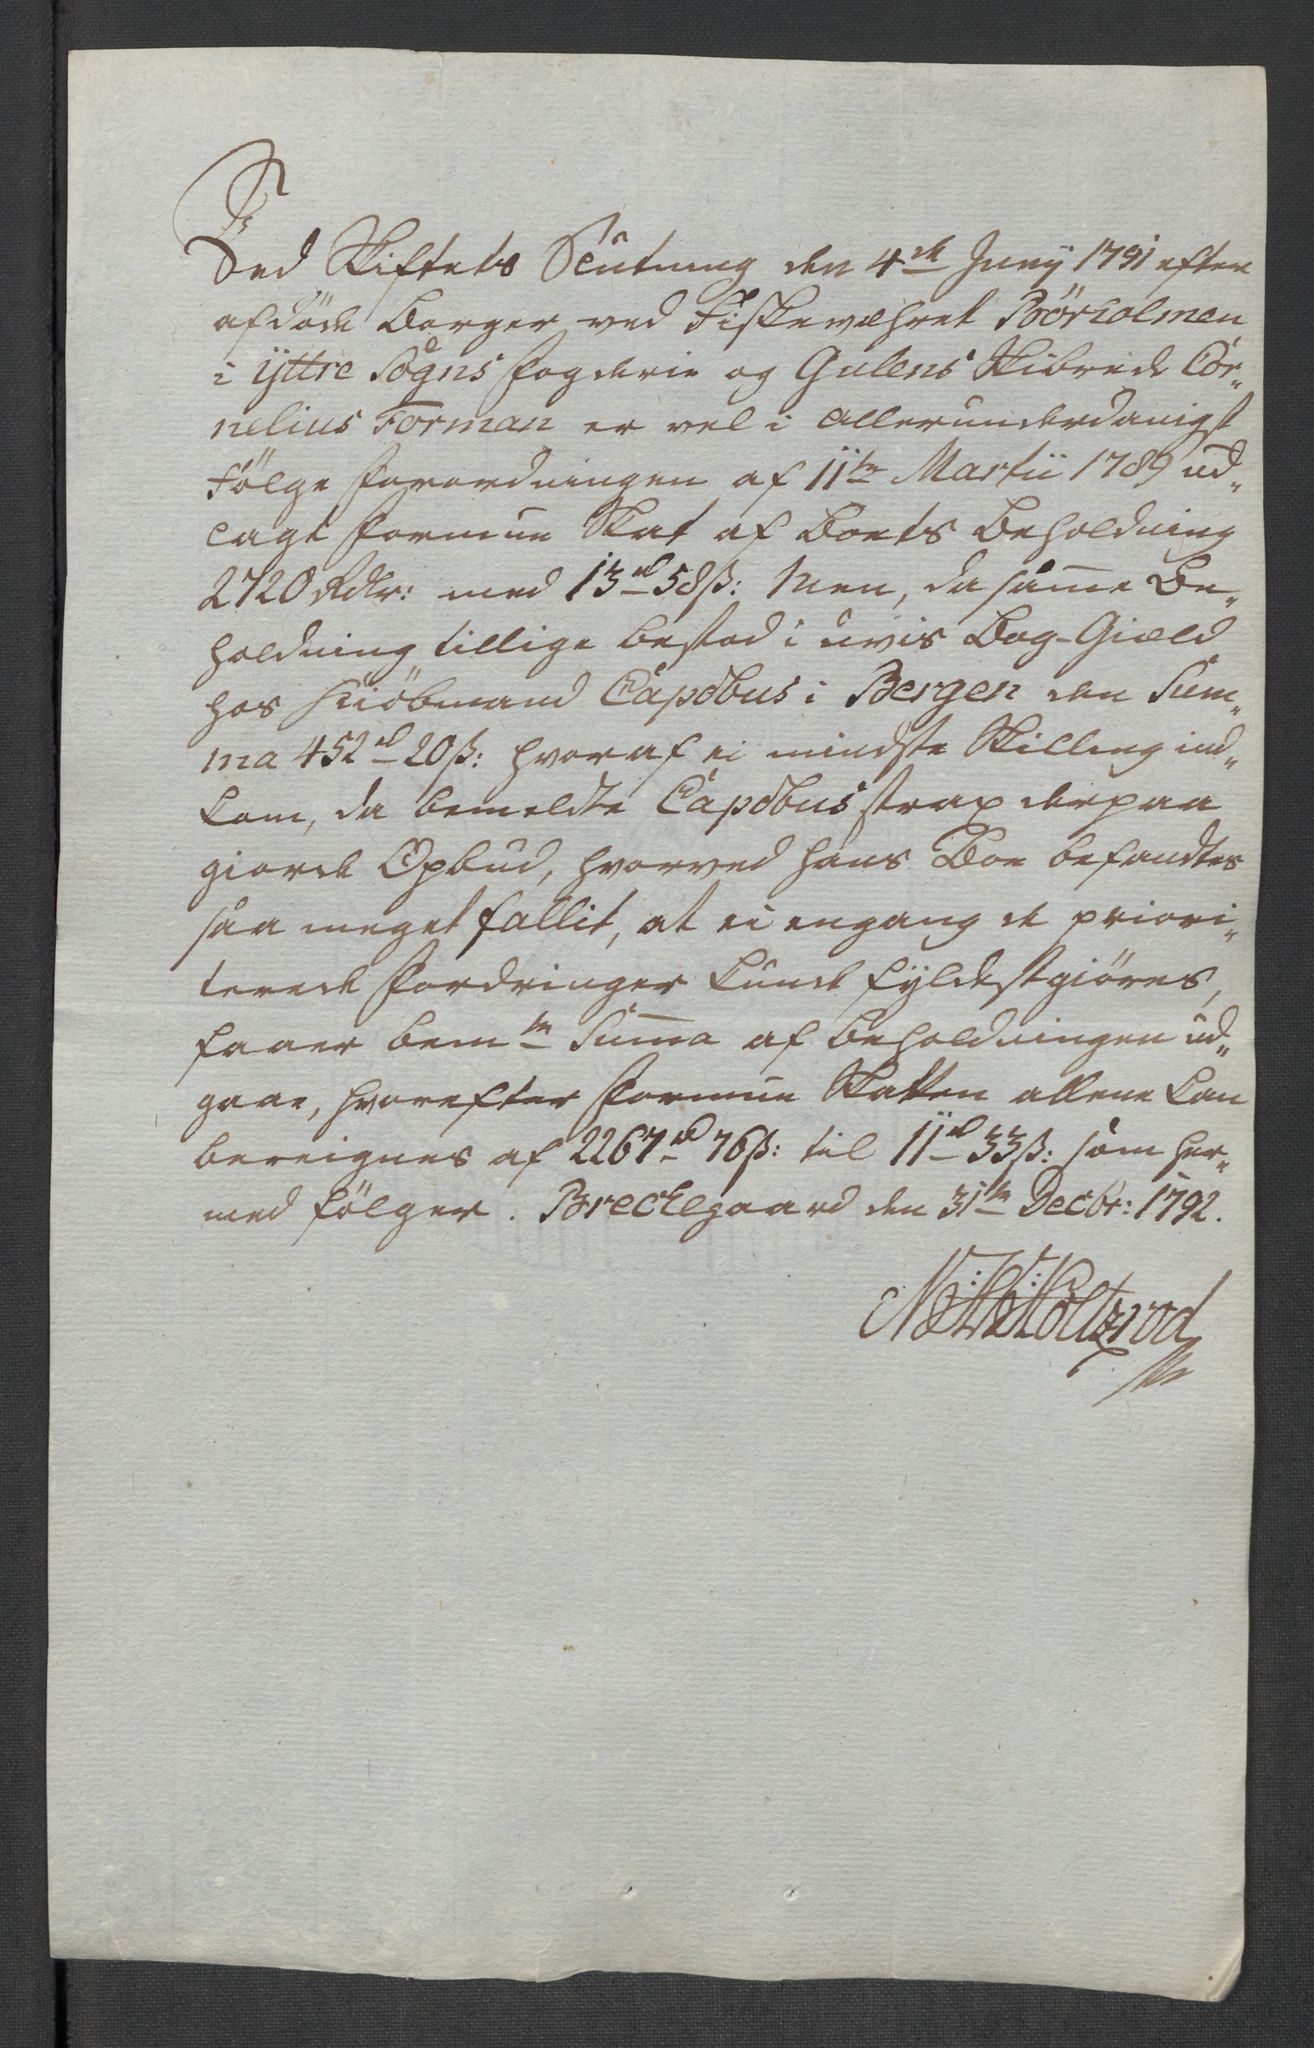 Ved Skiftets Slutning den 4de Junÿ 1791 efter
afdöde Borger ved Fiskeværet Börholmen
i Ÿttre Sogns Fogderie og Gulens Skibrede Cor„
nelius Forman er vel i allerunderdanigst
Fölge Forordningen af 11te Martii 1789 ud„
lagt Formue Skat af Boets Beholdning
2720 Rdlr: med 13rd 58ß: Men, da samme Be„
holdning tillige bestod i uvis Bog-Giæld
hos Kiöbmand Capobus i Bergen den Sum„
ma 452rd 20ß: hvoraf ei mindste Skilling ind„
kom, da bemeldte Capobus strax derpaa
giorde Opbud, hvorved hans Boe befandtes
saa meget fallit, at ei engang de priori„
terede Fordringer kunde fyldestgiöres,
faaer bemte Summa af Beholdningen ud„
gaae, hvorefter Formue Skatten allene kan
bereignes af 2267rd 76ß: til 11rd 33ß: som her„
med fölger. Breckegaard den 31te Decbr: 1792.
Holtzrod